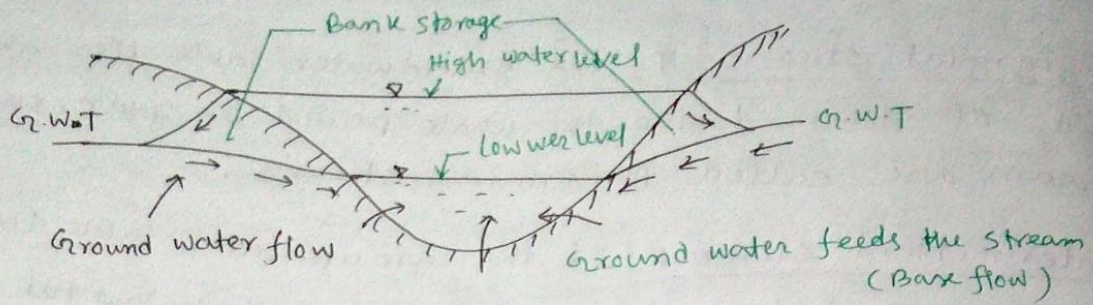 Bank storage
High water level
G.W.T
G.W.T
Low wer level
Ground water flow
Ground water feeds the stream
(Base flow)